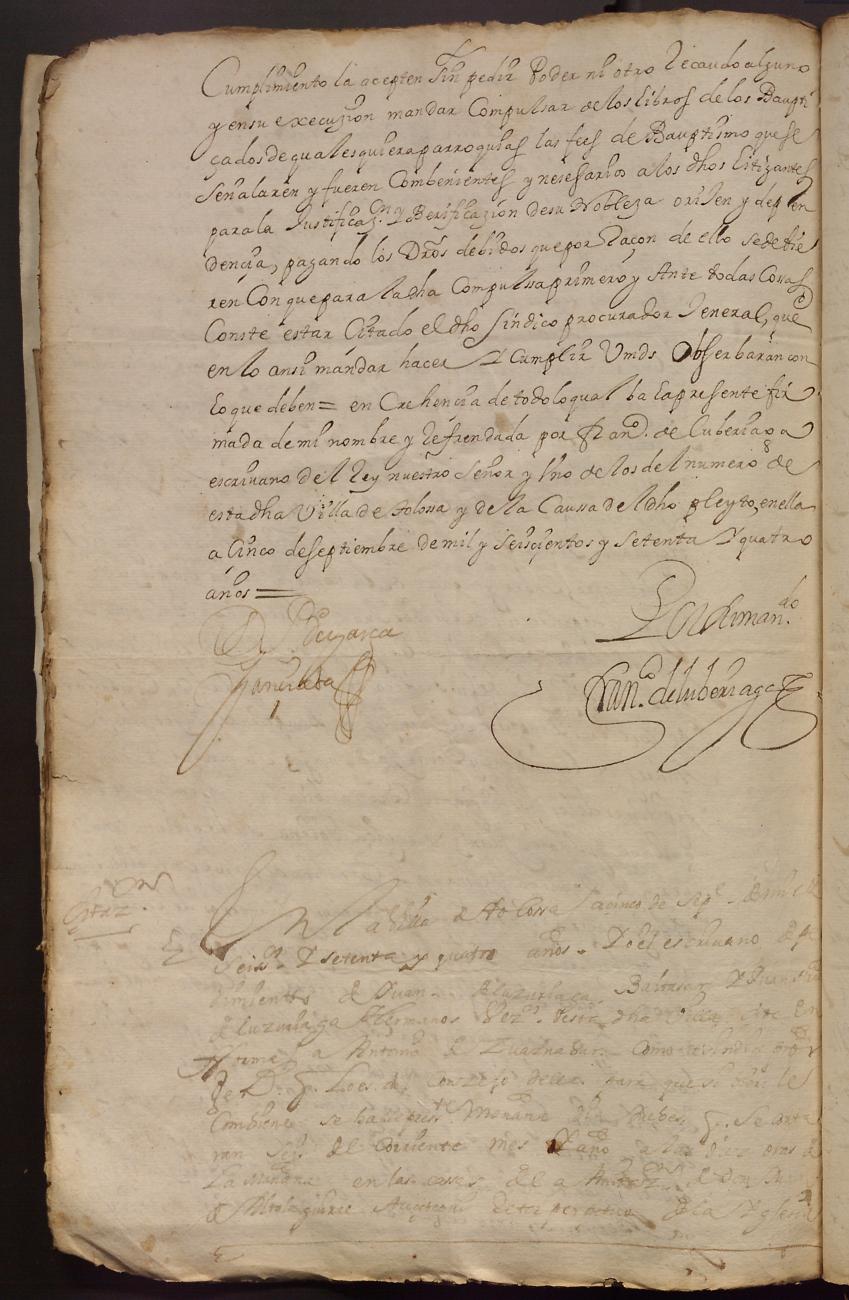 Cumplimiento la acepten sin pedir Poder ni otro Recaudo alguno
y en su execuzion mandar Compulsar de los libros de los Baupti
çados de qualesquiera parroquias las fees de Bauptismo que se
señalaren y fueren Combenientes y nesesarias a los dhos litigantes
para la Justificaz.on y Berificazion de su Nobleza orijen y depen
dencia, pagando los Dros debidos que por Raçon de ello se debie
ren Con que para la dha Compulsa primero y Ante todas Cossas
Conste estar Citado el dho sindico procurador Jeneral, que
en lo ansi mandar hacer Y Cumplir Vmds Obserbaran con
lo que deben = en Crehencia de todo lo qual ba la presente fir
mada de mi nombre y Refrendada por Fran.co de Luberiaga
escriuano del Rey nuestro Señor y Vno de los del numero de
esta dha Villa de tolossa y de la Caussa del dho pleyto, en ella
a Cinco de septiembre de mil y seiscientos y setenta Y quatro
años =
Por su man.do
Fran.co de luberiaga
Citaz.on
En la Villa de tolossa a cinco de sep.e de mill
Seis.os Y setenta y quatro años. Yo el escriuano de pe
dimiento de Juan de luzuriaga, Baltasar Y Juan
de luzuriaga Hermanos Vez.os desta dha Villa cite en
forma a Antonio de como sindico
conzejo della para que si bien le
Combiene se halle
del corriente mes Y año a las diez oras de
la mañana en las cassas de
de la Yglesia